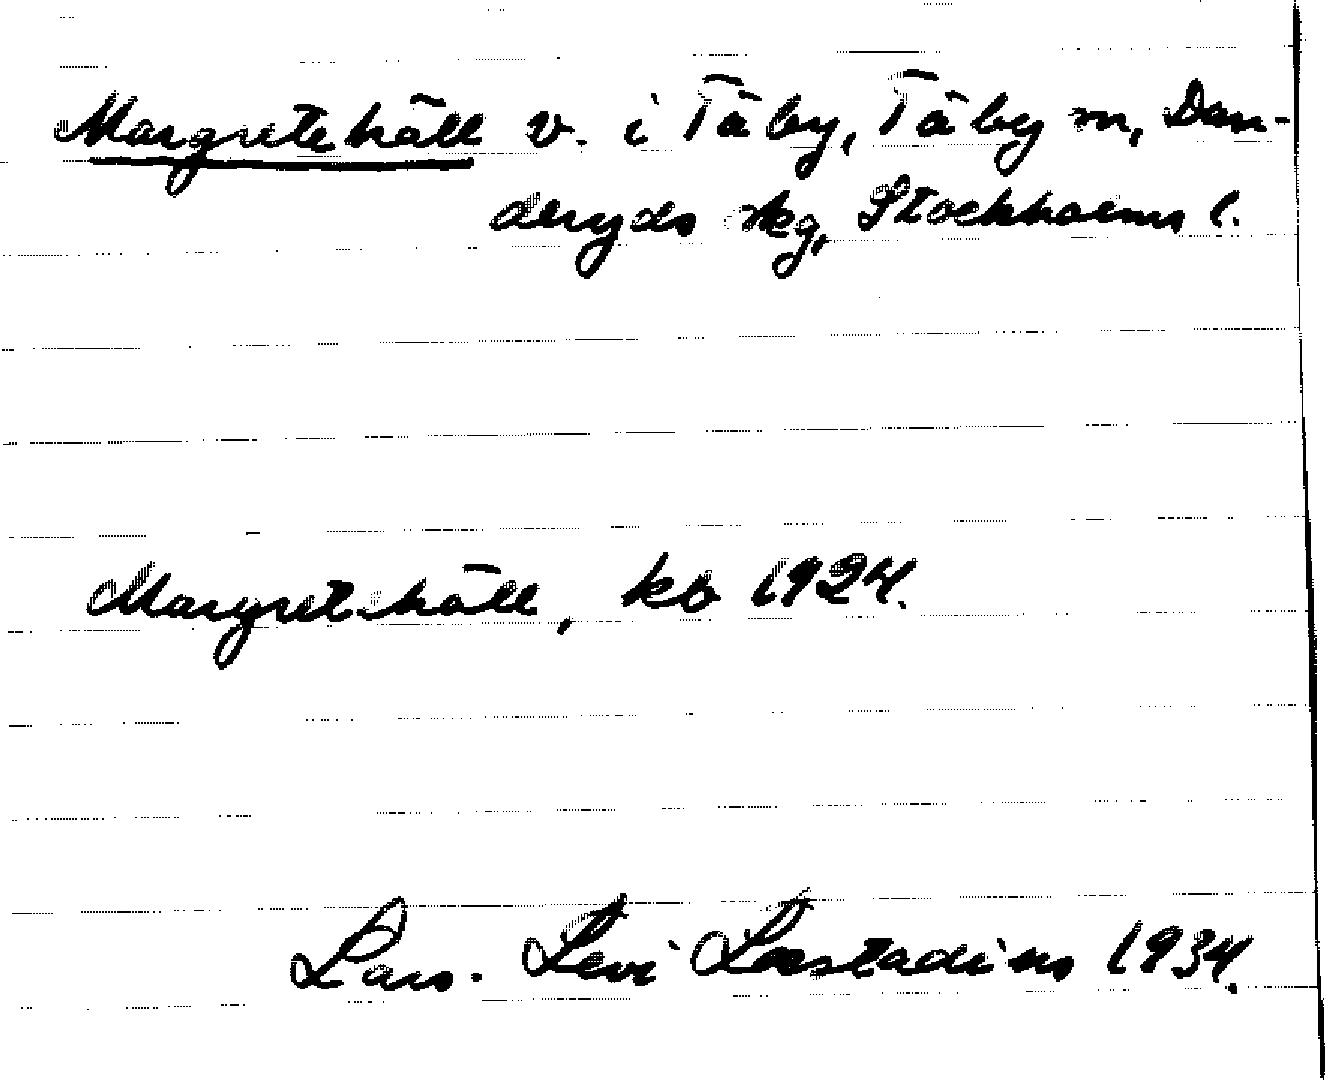 Margretehäll v. i Täby, Täby sn, Dan-
deryds skg, Stockholms l.
Margretehäll, kb 1924.
Lars-Levi Læstadius 1934.